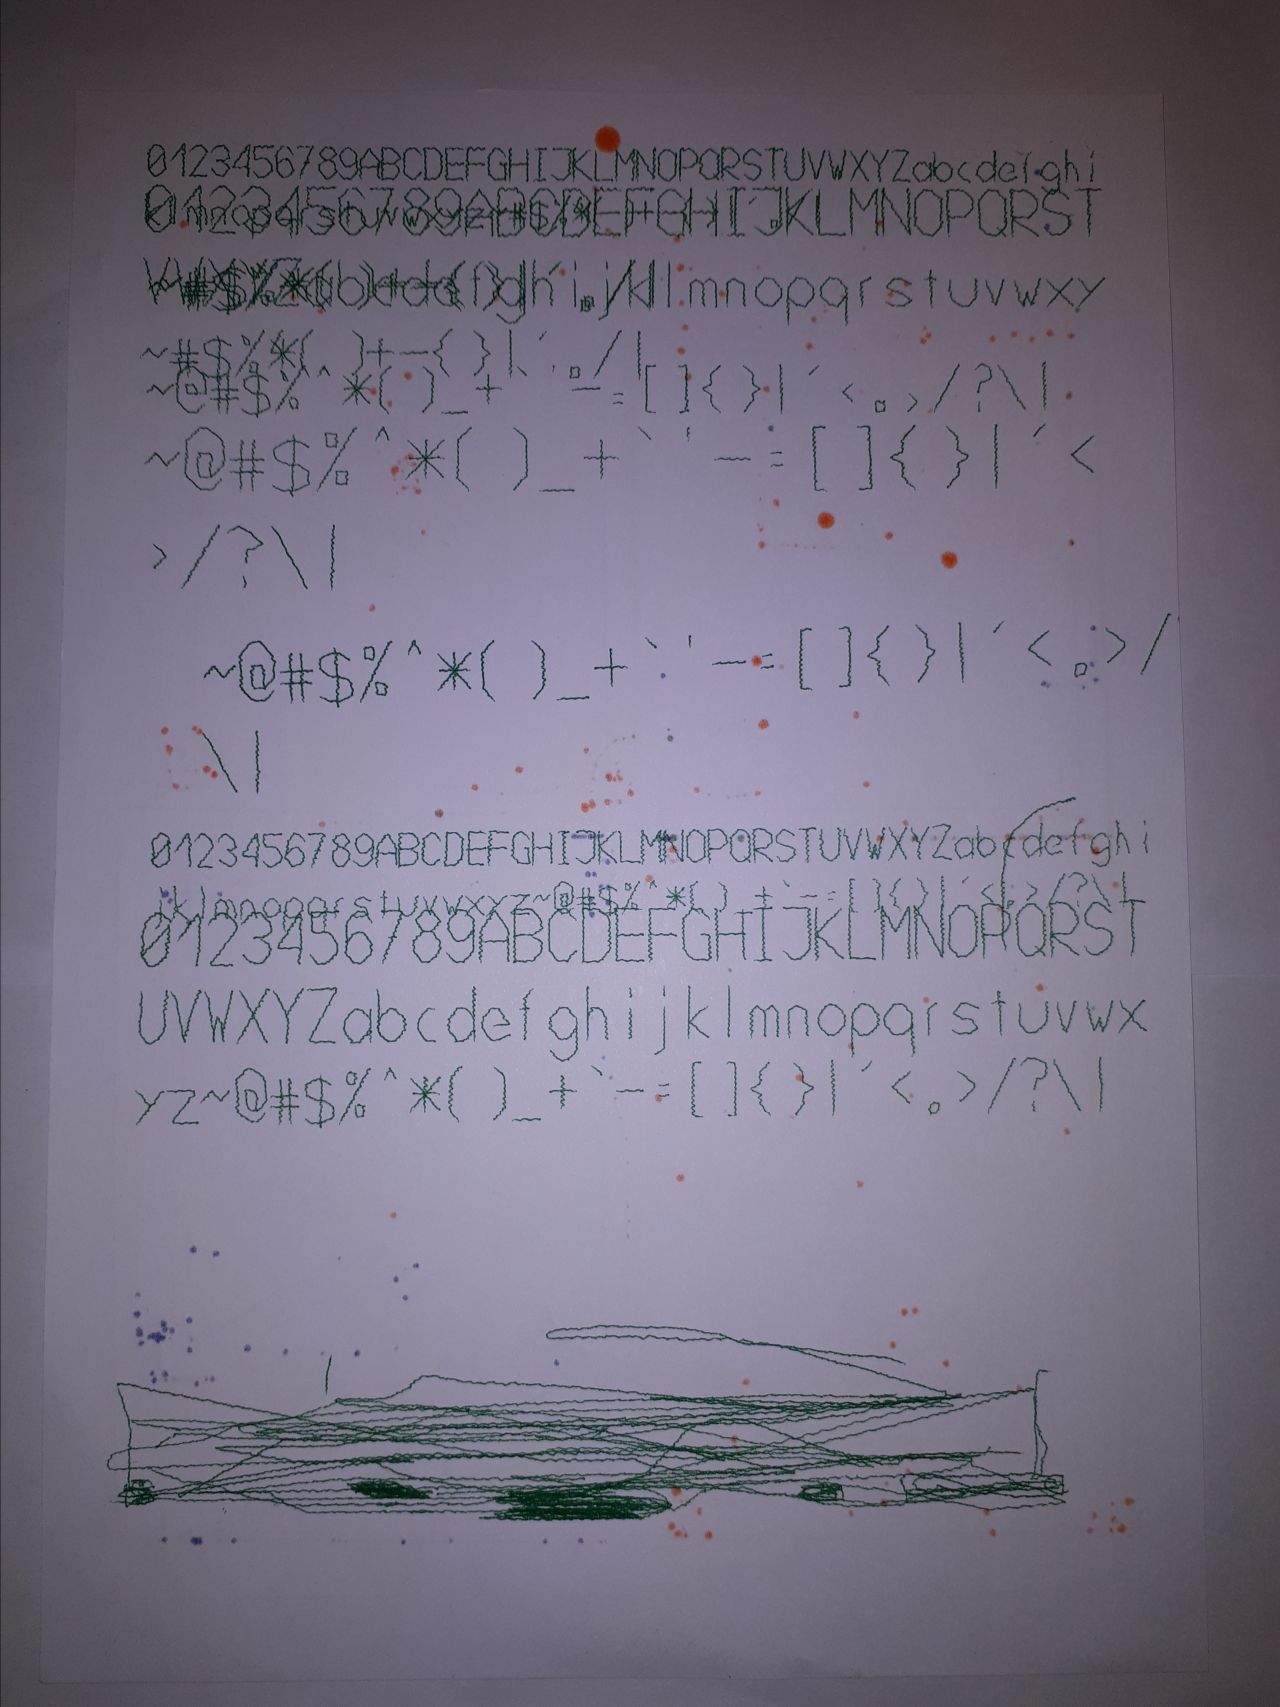 0123456789ABCDEFGHIJKLMNOPQRSTUVWXYZabcdefghi
0123456789ABCDEFGHIJKLMNOPQRST
klmnopqrstuvwxy
~#$%*( )+-{ }|´ . /|
~@#$%^*( )_+ -=[ ]{ }|´<.>/?\|
~@#$%^*( )_+`'-=[ ]{ }|´<
>/?\|
~@#$%^*( )_+`'-=[ ]{ }|´<.>/
\|
0123456789ABCDEFGHIJKLMNOPQRSTUVWXYZabcdefghi
jklmnopqrstuvwxyz~@#$%^*( ) +`-=[ ]{ }|´<.>/?\|
0123456789ABCDEFGHIJKLMNOPQRST
UVWXYZabcdefghijklmnopqrstuvwx
yz~@#$%^*( )_+`-=[ ]{ }|´<.>/?\|